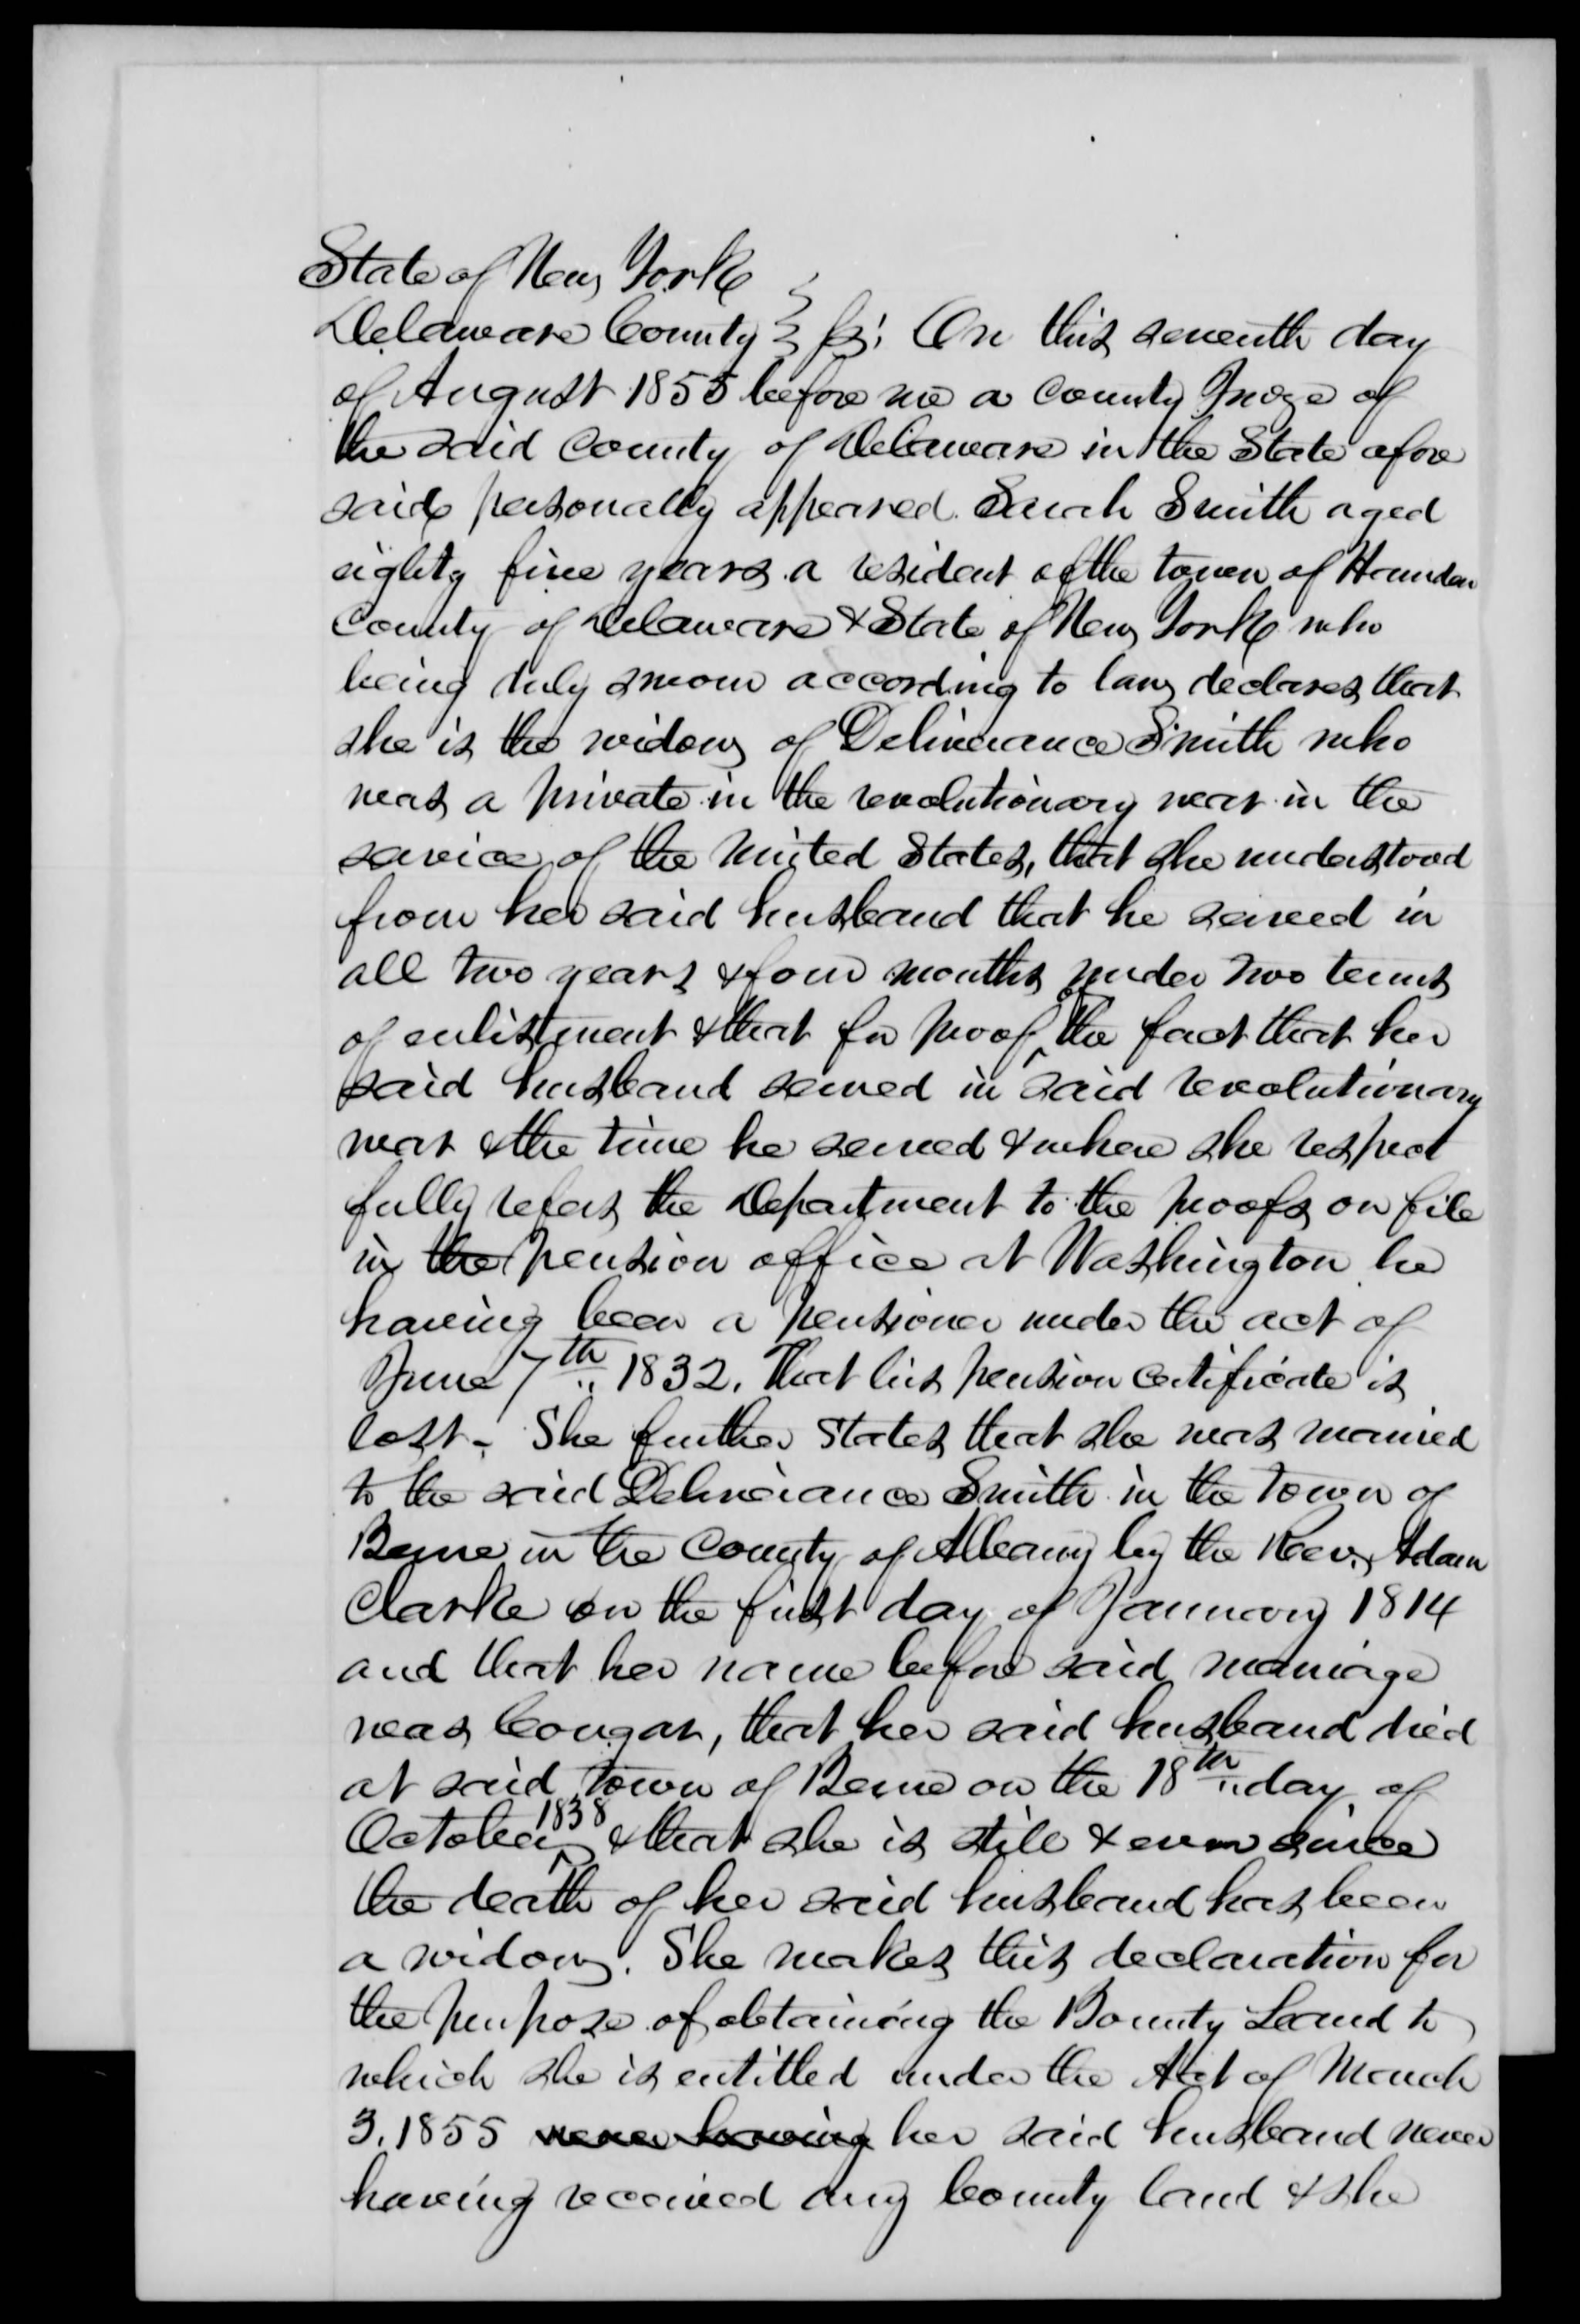 State of New York
Delaware County } ss: On this seventh day
of August 1855 before me a County Judge of
the said County of Delaware in the State afore
said personally appeared Sarah Smith aged
eighty five years a resident of the town of Hamden
County of Delaware & State of New York who
being duly sworn according to law, declares that
she is the widow of Deliverance Smith who
was a private in the revolutionary war in the
service of the United States, that she understood
from her said husband that he served in
all two years & four months under two terms
of enlistment & that for proof of the fact that her
said husband served in said revolutionary
war & the time he served & where she respect
fully refers the Department to the proofs on file
in the pension office at Washington he
having been a pensioner under the act of
June 7th 1832. That his pension certificate is
lost. She further States that she was married
to the said Deliverance Smith in the town of
Berne in the County of Albany by the Rev. Adam
Clarke on the first day of January 1814
and that her name before said marriage
was Congar, that her said husband died
at said town of Berne on the 18th day of
October 1838 & that she is still & ever since
the death of her said husband has been
a widow. She makes this declaration for
the purpose of obtaining the Bounty Land to
which she is entitled under the Act of March
3. 1855 never having her said husband never
having received any bounty land & she